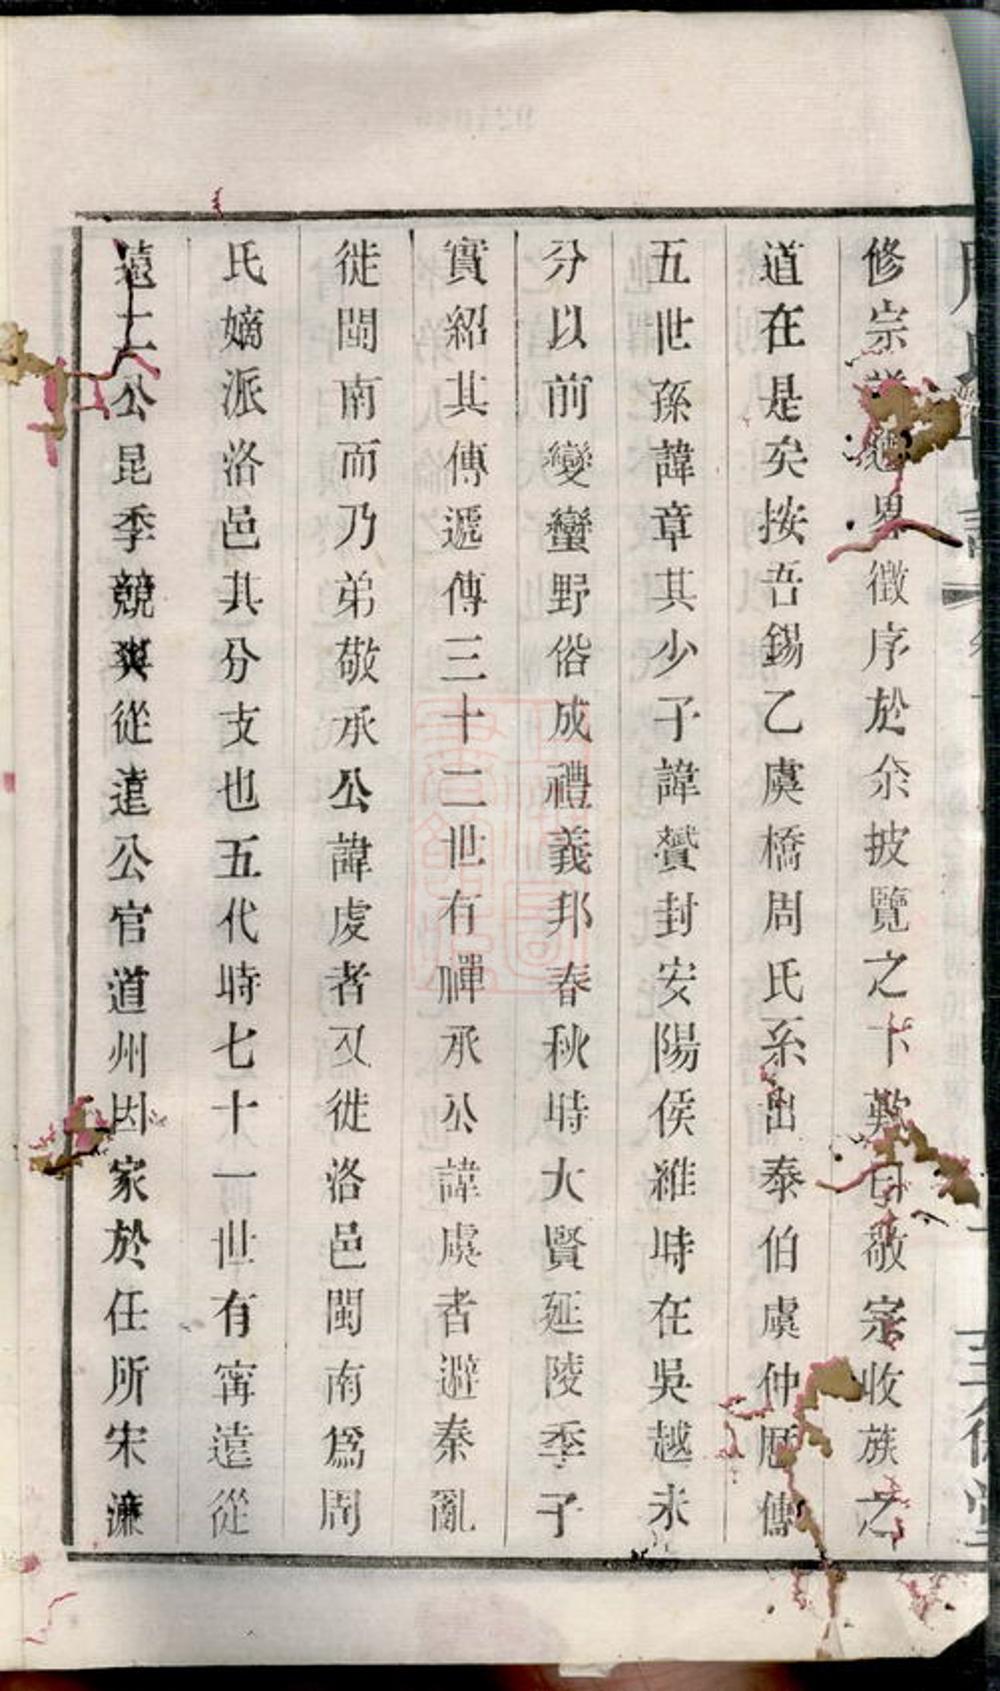 修宗譜 界徵序於余披覽之下歎曰敬宗收族之
道在是矣按吾錫乙虞橋周氏系出泰伯虞仲歷傳
五世孫諱章其少子諱贇封安陽侯維時在吳越未
分以前變蠻野俗成禮義邦春秋時大賢延陵季子
實紹其傳遞傳三十二世有禪承公諱虞者避秦亂
徙閩南而乃弟敬承公諱虔者又徙洛邑閩南為周
氏嫡派洛邑其分支也五代時七十一世有甯遠從
遠二公昆季競爽從遠公官道州因家於任所宋濂